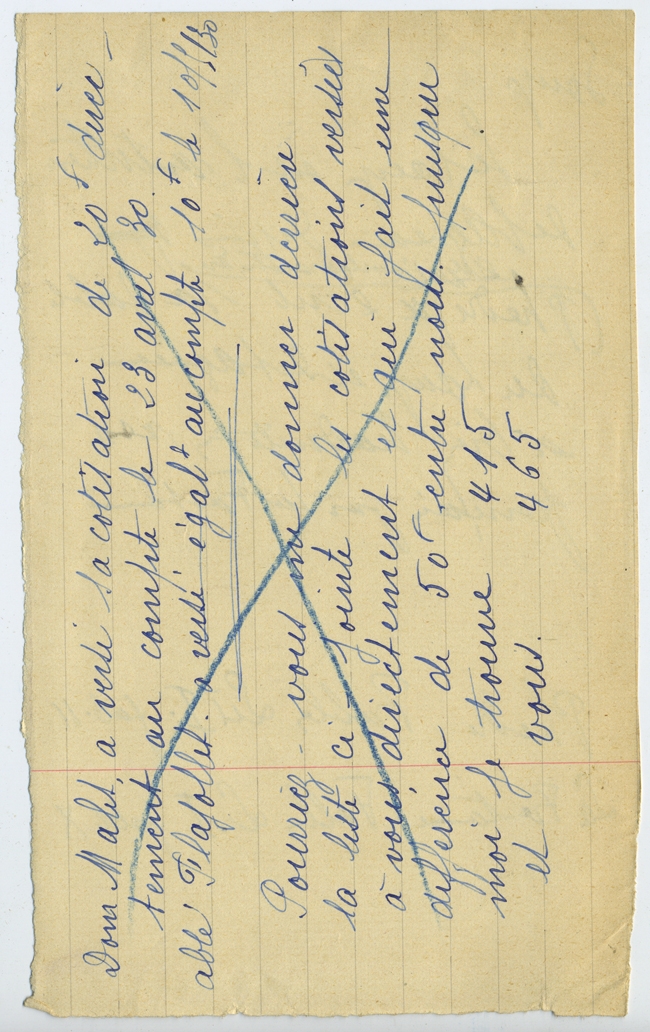 Dom Malet, a versé sa cotisation de 20f direc-
tement au compte le 23 avril 30.
abbé Flajollet. a versé égalt au compte 10f le 10/5/30
Pourriez-vous me donner derrière
la liste ci jointe les cotisations versées
à vous directement et qui fait une
différence de 50f entre nous. puisque
moi je trouve 415
et vous. 465